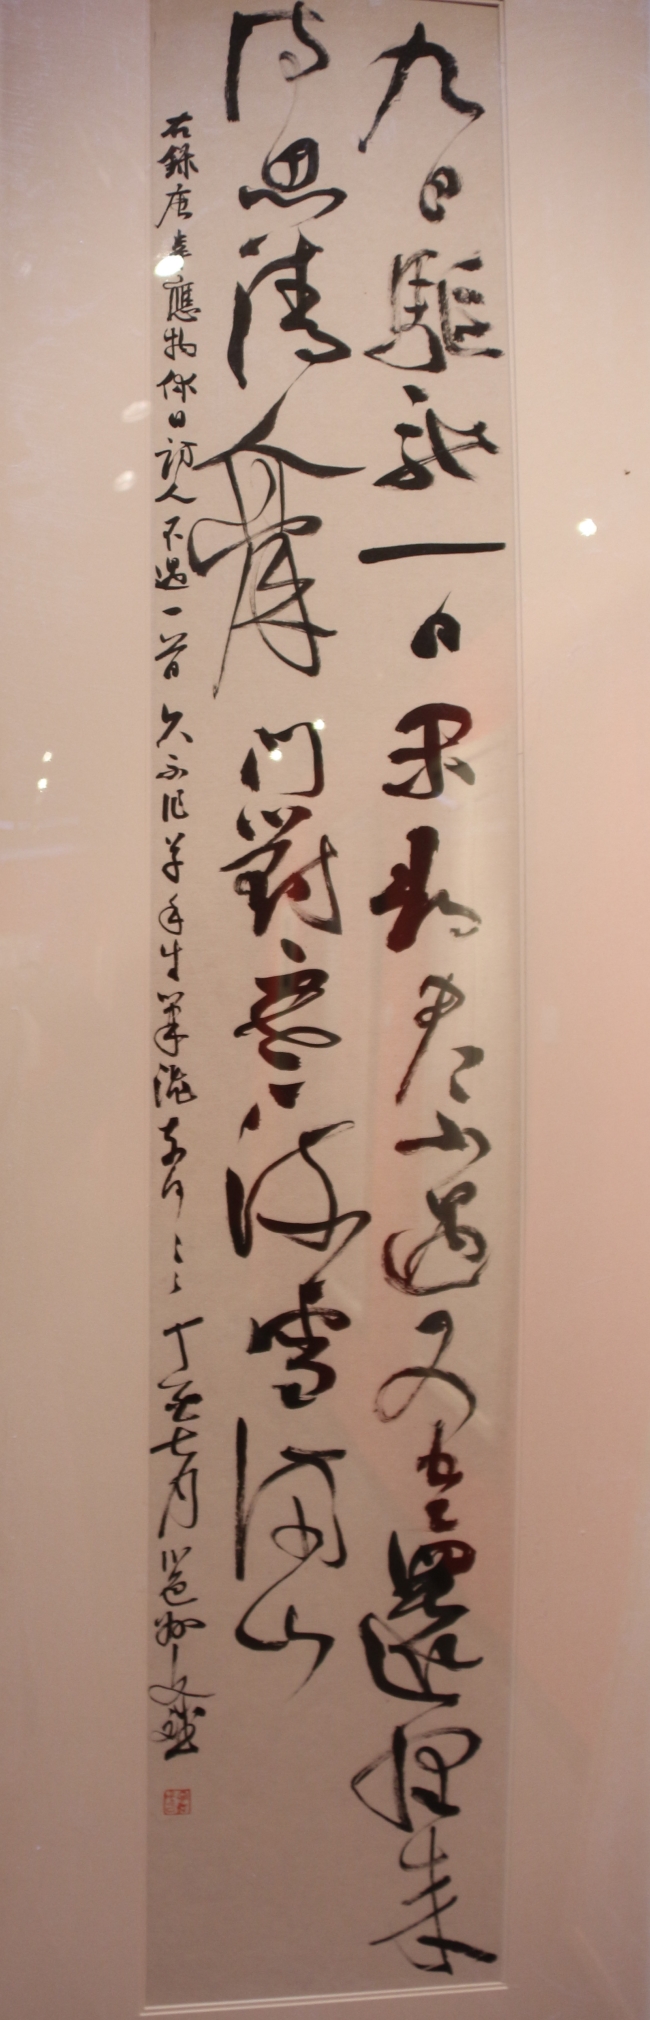 九日驅馳一日閑尋君不遇又空還怪來
詩思清人骨門對寒流雪滿山
右錄唐韋應物休日訪人不遇一首久不作草手生筆澀奈何奈何丁亥七月